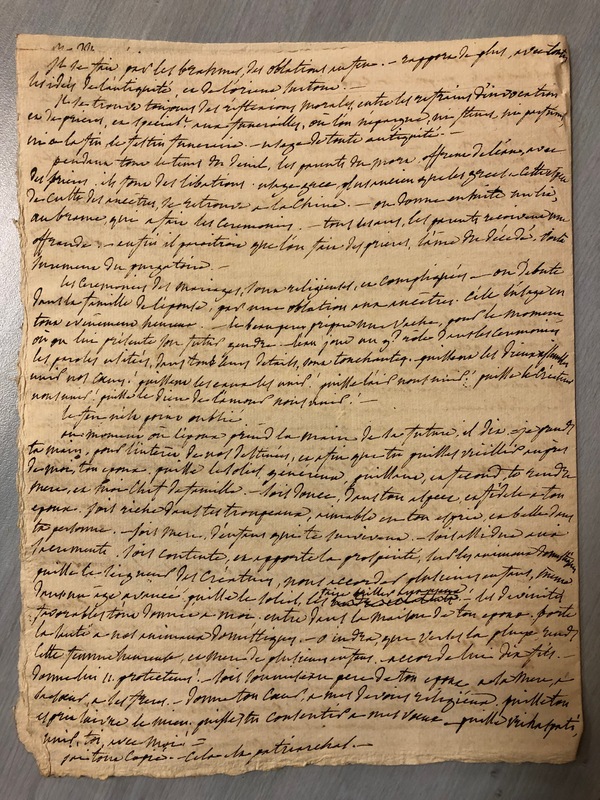 il se fait par les brahmes, des oblations au feu. — rapport de plus, avec toutes
les idées de l'antiquité, et de l'orient surtout. —
il se trouve toujours des réflexions morales, entre les refrains d'invocations
et de prieres, en spécial aux funerailles, où l'on n'épargne, ni fleurs, ni parfums,
ni à la fin le festin funeraire. — usage de toute antiquité. —
pendant tout le tems du deuil, les parents du mort, offrent de l'eau, avec
des prieres. ils font des libations. usage grec, plus ancien que les grecs. — cette espece
de culte des ancêtres, se retrouve à la Chine. — on donne ensuite un lit,
au brame qui a fait les ceremonies. — tous les ans, les parents reçoivent une
offrande. — enfin il paroît que l'on fait des prieres, l'ame du décédé, sorte
surement du purgatoire. —
les cérémonies des mariages, sont religieuses, et compliquées. — on débute
dans la famille de l'épouse, par une oblation aux ancêtres. c'est l'usage en
tout évènement heureux. — le beau pere prépare une vache, pour le moment
où on lui présente son futur gendre. — l'eau joue un gd role dans les cérémonies
les paroles usitées, dans tous leurs détails, sont touchantes. puissent les dieux
unir nos cœurs! puissent les eaux les unir! puisse l'air nous unir! puisse le Créateur
nous unir! puisse le dieu de l'amour nous unir! —
le feu n'est point oublié
au moment où l'époux prend la main de la future, il dit = je prends
ta main, pour l'interêt de nos destinées, et afin que tu puisses vieillir auprès
de moi, ton époux. puisse le soleil généreux, puissant, et fécond, te rendre
mere, et moi chef de famille. — sois douce, dans ton aspect, et fidele à ton
époux. sois riche dans tes troupeaux, aimable en ton esprit, et belle dans
ta personne. — sois mere, d'enfans qui te survivent. — sois assidue aux
sacrements. sois contente, et apporte la prospérité, sur les animaux domestiques
puisse le seigneur des Créatures, nous accorder plusieurs enfans, même
dans un age avancé, puisse le soleil, les — les divinités
favorables t'ont donnée à moi. entre dans la maison de ton époux. porte
la santé à nos animaux domestiques. — o indra, qui verses la pluye, rends
cette femme heureuse, et mere de plusieurs enfans. accorde lui dix fils. —
donne lui 11. protecteurs. — sois soumise au pere de ton époux, à sa mere à
sa sœur, à ses freres. — donne ton cœur, à mes devoirs religieux. puisse ton
esprit suivre le mien. puisses tu consentir à mes vœux — puisse vrihaspati,
unir, toi, avec moi =
j'ai tout copié. — cela est patriarchal. —